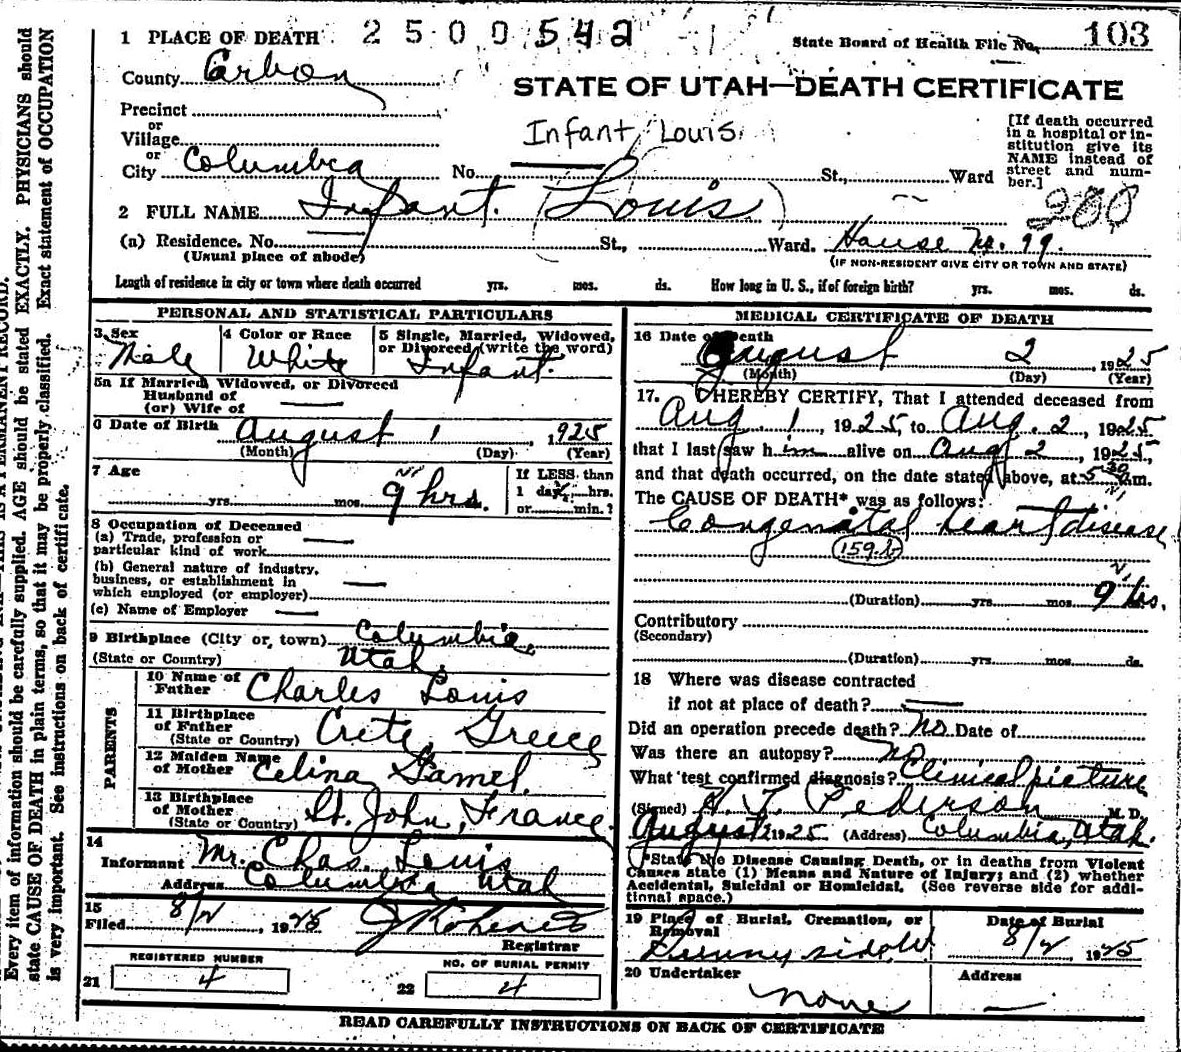 1 PLACE OF DEATH 2500542 State Board of Health File No. 103
County Carbon
STATE OF UTAH—DEATH CERTIFICATE
Precinct
or
Village
Infant Louis
[If death occurred in a hospital or institution give its NAME instead of street and number.]
or
City Columbia No. St., Ward
280
2 FULL NAME Infant (Louis)
(a) Residence. No. St., Ward. House No. 99.
(Usual place of abode) (IF NON-RESIDENT GIVE CITY OR TOWN AND STATE)
Length of residence in city or town where death occurred yrs. mos. ds. How long in U. S., if of foreign birth? yrs. mos. ds.
PERSONAL AND STATISTICAL PARTICULARS
3 Sex Male
4 Color or Race White
5 Single, Married, Widowed, or Divorced (write the word) Infant.
5a If Married, Widowed, or Divorced
Husband of
(or) Wife of
6 Date of Birth August 1, 1925
(Month) (Day) (Year)
7 Age yrs. mos. 9 hrs.
If LESS than
1 day, hrs.
or min.?
8 Occupation of Deceased
(a) Trade, profession or
particular kind of work
(b) General nature of industry,
business, or establishment in
which employed (or employer)
(c) Name of Employer
9 Birthplace (City or town) Columbia,
(State or Country) Utah.
PARENTS
10 Name of Father Charles Louis
11 Birthplace of Father (State or Country) Crete, Greece
12 Maiden Name of Mother Celina Gamel.
13 Birthplace of Mother (State or Country) St. John, France.
14
Informant Mr. Chas. Louis
Address Columbia Utah
15
Filed 8/2, 1925
Registrar
21 REGISTERED NUMBER 4
22 NO. OF BURIAL PERMIT 4
MEDICAL CERTIFICATE OF DEATH
16 Date of Death August 2, 1925
(Month) (Day) (Year)
17. I HEREBY CERTIFY, That I attended deceased from
Aug. 1, 1925, to Aug. 2, 1925
that I last saw him alive on Aug 2, 1925,
and that death occurred, on the date stated above, at 5 30 a.m.
The CAUSE OF DEATH* was as follows:
Congenatal heart disease
159.b
(Duration) yrs. mos. 9 hrs.
Contributory
(Secondary)
(Duration) yrs. mos. ds.
18 Where was disease contracted
if not at place of death?
Did an operation precede death? No Date of
Was there an autopsy? No
What test confirmed diagnosis? Clinical picture
(Signed) H. T. Pederson M. D.
August 2 1925 (Address) Columbia, Utah.
*State the Disease Causing Death, or in deaths from Violent
Causes state (1) Means and Nature of Injury; and (2) whether
Accidental, Suicidal or Homicidal. (See reverse side for addi-
tional space.)
19 Place of Burial, Cremation, or Removal Sunnyside Ut
Date of Burial 8/2 1925
20 Undertaker none
Address
READ CAREFULLY INSTRUCTIONS ON BACK OF CERTIFICATE
Every item of information should be carefully supplied. AGE should be stated EXACTLY. PHYSICIANS should
state CAUSE OF DEATH in plain terms, so that it may be properly classified. Exact statement of OCCUPATION
is very important. See instructions on back of certificate.